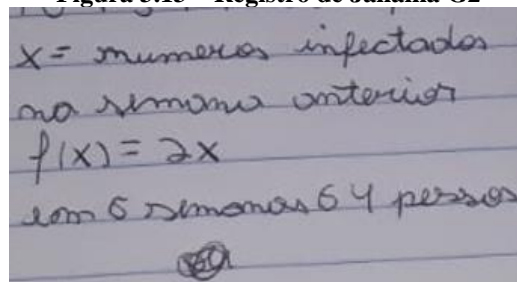 Figura 5.13 – Registro de Janaína G2
x = numeros infectados
na semana anterior
f(x) = 2x
com 6 semanas 64 pessoas